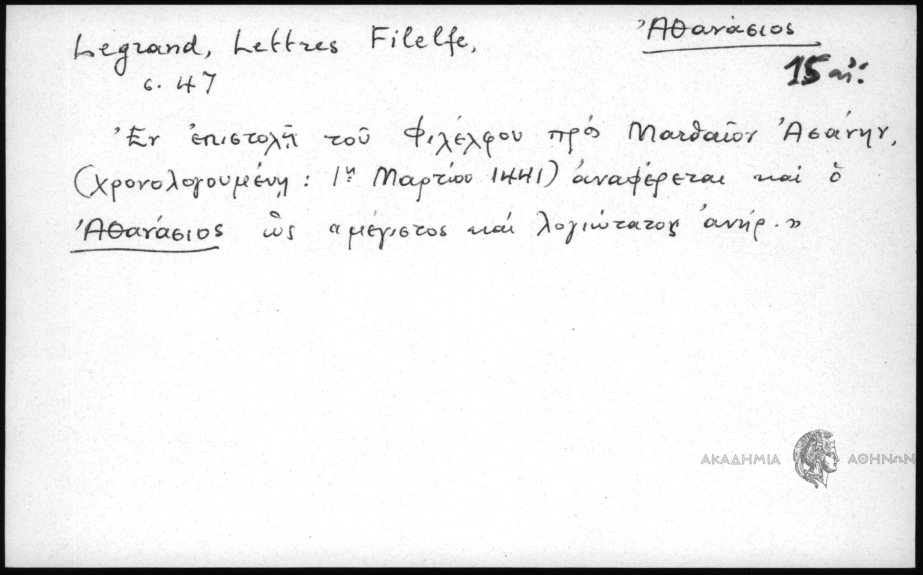 Legrand, Lettres Filelfe,
σ. 47
Ἀθανάσιος
15 αἰ:
Ἐν ἐπιστολῇ τοῦ Φιλέλφου πρὸς Ματθαῖον Ἀσάνην,
(χρονολογουμένῃ : 1ῃ Μαρτίου 1441) ἀναφέρεται καὶ ὁ
Ἀθανάσιος ὡς "μέγιστος καὶ λογιώτατος ἀνήρ."
ΑΚΑΔΗΜΙΑ ΑΘΗΝΩΝ